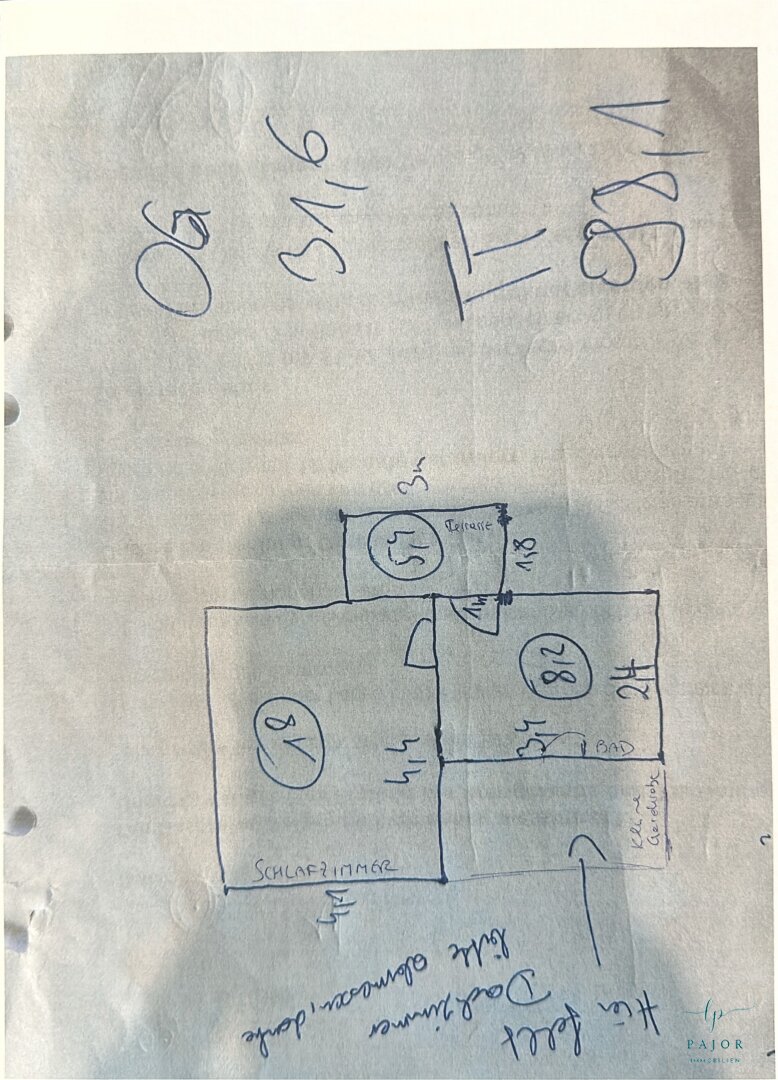 OG
31,6
II
98,1
3m
5,4
Terrasse
1,8
1m
18
4,4
8,2
2,4
3,4
BAD
Kleine
Garderobe
SCHLAFZIMMER
4,1
Hier fehlt
Dachzimmer
bitte abmessen, danke
lp
PAJOR
IMMOBILIEN